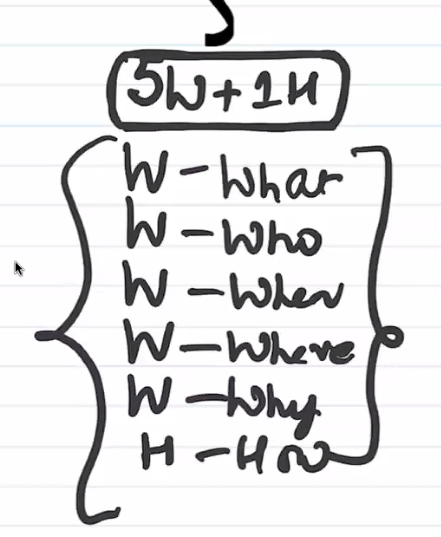 5W+1H
W - What
W - Who
W - When
W - Where
W - Why
H - How